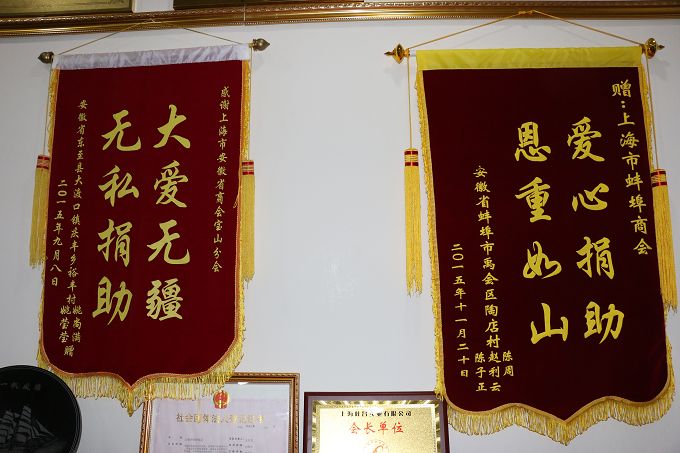 感谢上海市安徽省商会宝山分会
大爱无疆
无私捐助
安徽省东至县大渡口镇庆丰乡裕丰村姚尚满
姚莹莹
赠
二〇一五年九月八日
赠：上海市蚌埠商会
爱心捐助
恩重如山
安徽省蚌埠市禹会区陶店村
陈周
赵利云
陈子正
二〇一五年十一月二十日
一帆风顺
会长单位